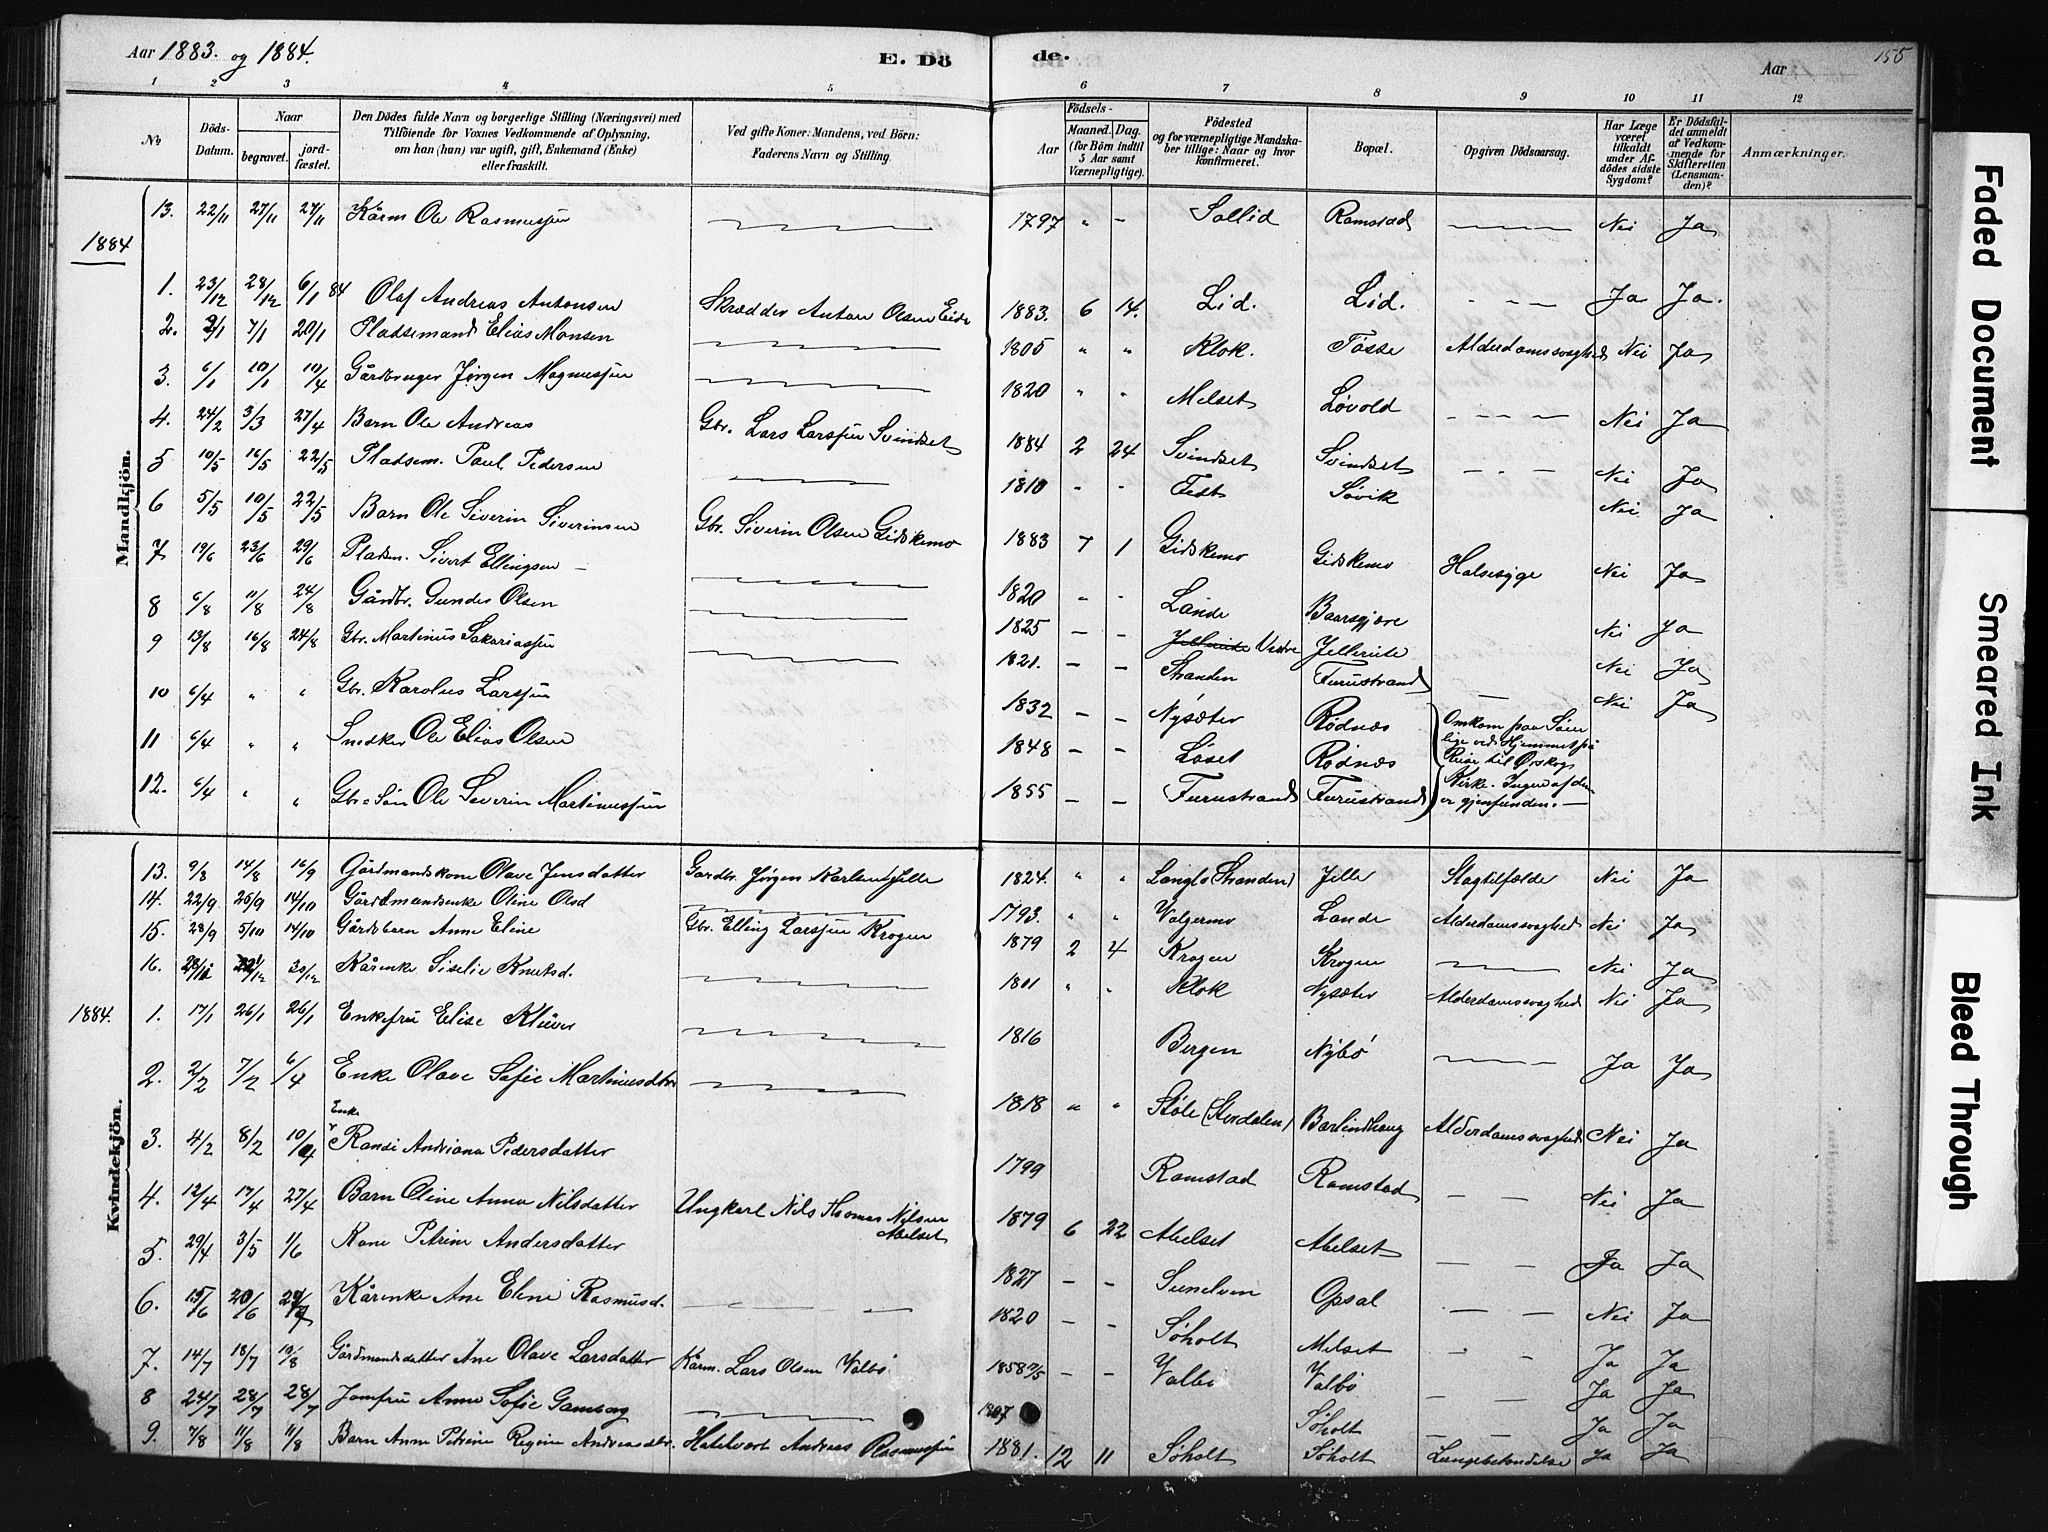 Aar 1883. og 1884. E. Dö de. Aar 155
1 2 3 4 5 6 7 8 9 10 11 12
№ Döds-Datum. Naar begravet. jord-fæstet. Den Dödes fulde Navn og borgerlige Stilling (Næringsvei) med Tilföiende for Voxnes Vedkommende af Oplysning, om han (hun) var ugift, gift, Enkemand (Enke) eller fraskilt. Ved gifte Koner: Mandens, ved Börn: Faderens Navn og Stilling. Födsels- Aar Maaned. Dag. (for Börn indtil 5 Aar samt Værnepligtige). Födested og for værnepligtige Mandskaber tillige: Naar og hvor Konfirmeret. Bopæl. Opgiven Dödsaarsag. Har Læge været tilkaldt under Afdödes sidste Sygdom? Er Dödsfaldet anmeldt af Vedkommende for Skifteretten (Lensmanden)? Anmærkninger.
Mandkjön.
13. 22/11 27/11 27/11 Kårm Ole Rasmussen 1797 " - Sollid Ramstad Nei Ja
1884
1. 23/12 28/12 6/1 84 Olaf Andreas Antonsen Skrædder Anton Olsen Eide 1883. 6 14. Lid. Lid. Ja Ja.
2. 2/1 7/1 20/1 Pladsemand Elias Monsen 1805 " " Klok. Tösse Alderdomssvaghed Nei Ja
3. 6/1 10/1 10/4 Gårdbruger Jørgen Magnussen 1820 " " Melset Løvold Nei Ja
4. 24/2 3/3 27/4 Barn Ole Andreas Gbr. Lars Larssen Svindset 1884 2 24 Svindset Svindset Nei Ja
5 10/5 16/5 22/5 Pladsem. Paul Pedersen 1810 - - Fest Søvik Nei Ja
6 5/5 10/5 22/5 Barn Ole Siverin Siverinsen Gbr. Siverin Olsen Gidskemo 1883 7 1 Gidskemo Gidskemo Halsesyge Nei Ja
7 19/6 23/6 29/6 Pladsm. Sivert Ellingsen 1820 - - Lande Baarsgjære Nei Ja
8 6/8 11/8 24/8 Gårdbr. Gunder Olsen 1825 - - Vestre Jelleriite Nei Ja
9 13/8 16/8 24/8 Gbr. Martinus Sakariassen 1821. - - Stranden Furustrand Nei Ja
10 6/4 " " Gbr. Karolus Larssen 1832 - - Nysæter Rødnæs
11 6/4 " " Snedker Ole Elias Olsen 1848 - - Løset Rødnæs
12. 6/4 " " Gbr-Søn Ole Severin Martinussen 1855 - - Furustrand Furustrand
Omkom paa Søen
lige ved Hjemmet på
Reise til Ørskog
Kirke. Ingen af dem
er gjenfunden.
Kvindekjön.
13. 9/8 14/8 16/9 Gårdmandskone Olave Jensdatter Gardbr. Jørgen Karlsen Jelle 1824. " " Langlo (Stranden) Jelle Slagtilfælde Nei Ja
14. 22/9 26/9 14/10 Gårdmandsenke Oline Olsd 1793. " " Valgermo Lande Alderdomssvaghed Nei Ja
15. 28/9 5/10 14/10 Gårdsbarn Anne Eline Gbr. Elling Larssen Krogen 1879 2 4 Krogen Krogen Nei Ja
16. 30/12 Kårenke Siselie Knutsd. 1801 " " Klok Nysæter Alderdomssvaghed Nei Ja
1884. 1. 17/1 26/1 26/1 Enkefru Elise Klüver 1816 Bergen Nybö Ja Ja
2. 2/2 7/2 6/4 Enke Olave Sofie Martinusdtr 1818 " " Støle (Stordalen) Barlindhaug Alderdomssvaghed Nei Ja
3. 4/2 8/2 10/4 Enke Randi Andriana Pedersdatter 1799 Ramstad Ramstad Nei Ja
4. 12/4 17/4 27/4 Barn Oline Anna Nilsdatter Ungkarl Nils Thomas Nilsen Abelset 1879 6 22 Abelset Abelset Ja Ja
5. 29/4 3/5 1/6 Kone Petrine Andersdatter 1827 - - Sunelven Opsal Nei Ja
6. 15/6 20/6 Kårenke Ane Eline Rasmusd. 1820 - - Søholt Melset Ja Ja
7. 14/7 18/7 10/8 Gårdmandsdatter Ane Olave Larsdatter Kårm. Lars Olsen Valbö 1858 - - Valbö Valbö Ja Ja
8 24/7 28/7 28/7 Jomfru Anne Sofie Gamborg Søholt Ja Ja
9. 7/8 11/8 11/8 Barn Anne Petrine Regine Andreasdtr. Andreas Rasmussen 1881. 12 11 Søholt Søholt Lungebetændelse Ja Ja
Faded Document
Smeared Ink
Bleed Through